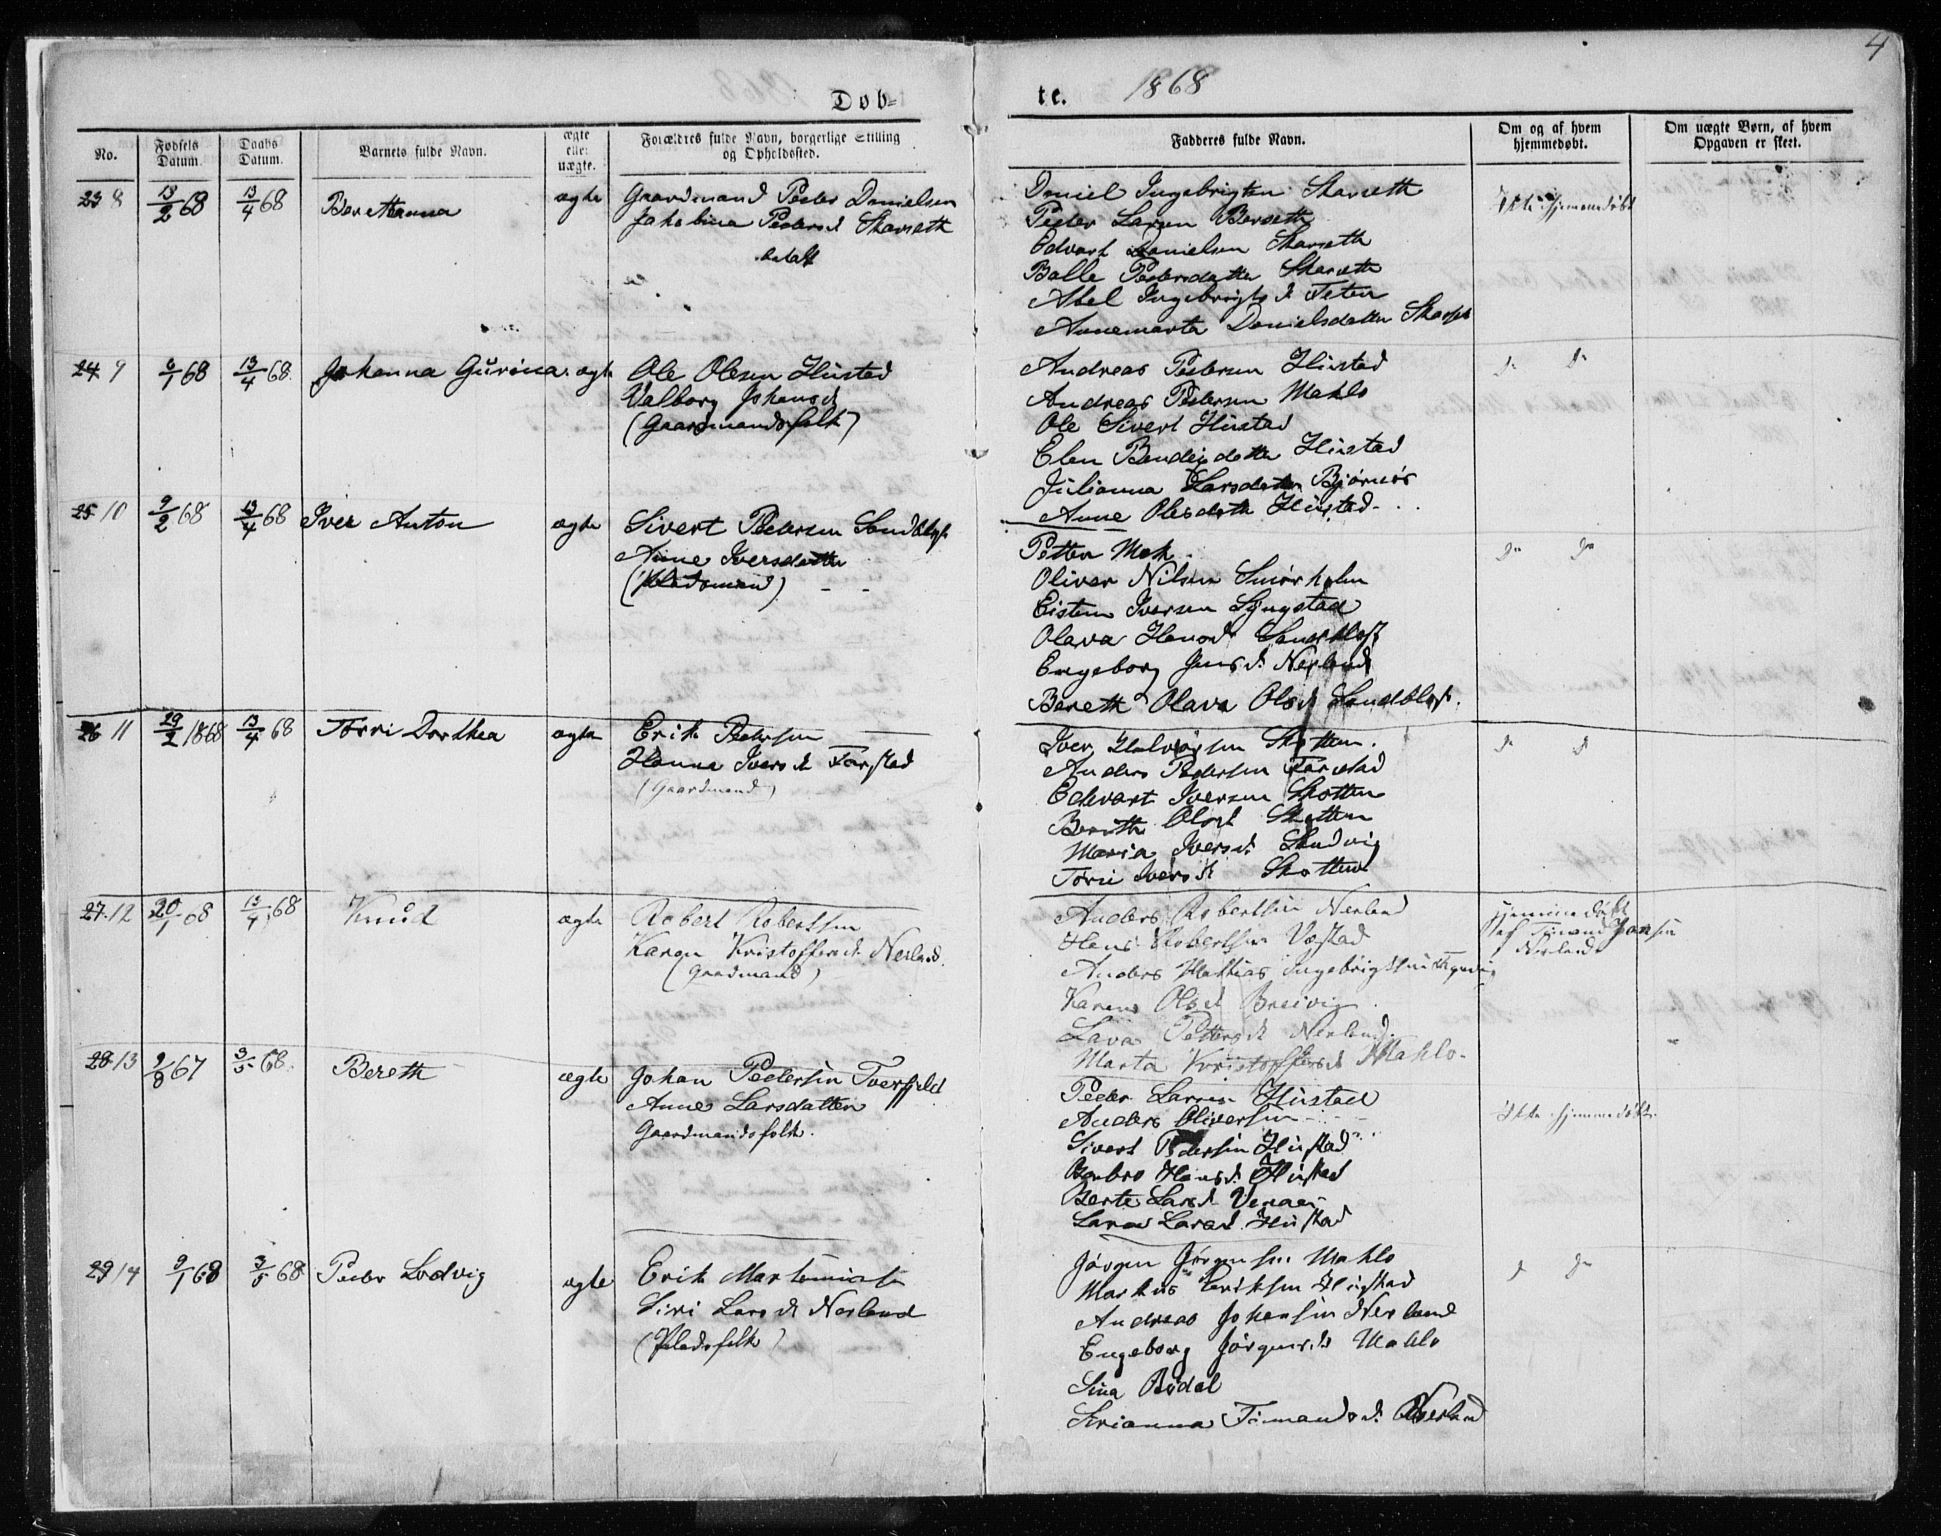 4
Døb=
te. 1868
No.
Fødsels Datum.
Daabs Datum.
Barnets fulde Navn.
ægte eller uægte.
Forældres fulde Navn, borgerlige Stilling og Opholdssted.
Fadderes fulde Navn.
Om og af hvem hjemmedøbt.
Om uægte Børn, af hvem Opgaven er skeet.
23 8
13/2 68
13/4 68
Berethanna
ægte
Gaardmand Peder Danielsen
Jakobina Pedersd Skarseth
betalt
Daniel Ingebrigtsen Skarseth
Peder Larsen Berseth
Edvart Danielsen Skarseth
Balle Pedersdatter Skarseth
Abel Ingebrigtsd Teten
Annemarta Danielsdatter Skarset
Ikke hjemmedøbt
24 9
6/1 68
13/4 68.
Johanna Gurina
ægte
Ole Olesen Hustad
Valborg Johansd
(Gaardmandsfolk)
Andreas Pedersen Hustad
Andreas Pedersen Mahlo
Ole Sivert Hustad
Elen Bendixdatter Hustad
Julianna Larsdatter Bjørnør
Anne Olesdatte Hustad
do do
25 10
9/2 68
13/4 68
Iver Anton
ægte
Sivert Pedersen Sandblyst
Anne Iversdatter
(Pladsmand)
Petter Moh
Oliver Nilsen Smørholm
Eisten Iversen Lyngstad
Olava Hansd Sandblost
Engeborg Jensd. Nerland
Bereth Olava Olsd Sandblost.
do do
26 11
29/2 1868
13/4 68
Torri Dorthea
ægte
Erik Pedersen
Hanna Iversd Farstad
(Gaardmand)
Iver Halvorsen Skotten.
Anders Pedersen Farstad
Edevart Iversen Skotten
Berethe Olsd Skotten
Maria Iversd. Sandvig
Torri Iversd Skotten
do do
27. 12
20/1 68
13/4 68
Knud
ægte
Robert Robertsen
Karen Kristoffersd. Nerland.
(Gaardmand)
Anders Robertsen Nerland
Hans Robertsen Vestad
Anders Mathias Ingebrigtsen
Karen Olsd Breivig
Lava Pettersd. Nerland
Marta Kristoffersd Mahlo.
hjemmedøbt
af Jonsen
Nerland
28 13
9/8 67
3/5 68.
Bereth
ægte
Johan Pedersen Tverfjeld
Anne Larsdatter
Gaardmandsfolk.
Peder Larsen Hustad
Anders Oliversen
Sivert Pedersen Hustad
Hansd. Hustad
Berte Larsd
Larsd. Hustad
Ikke hjemmedøbt.
29 14
9/1 68
3/5 68
Peder Ludvig
ægte
Erik Martinusen
Siri Larsd Nerland
(Pladsfolk)
Jørgen Jørgensen Mahlo
Markus Eriksen Hustad
Andreas Johansen Nerland
Engeborg Jørgensd. Mahlo
Sina Bodal
d do